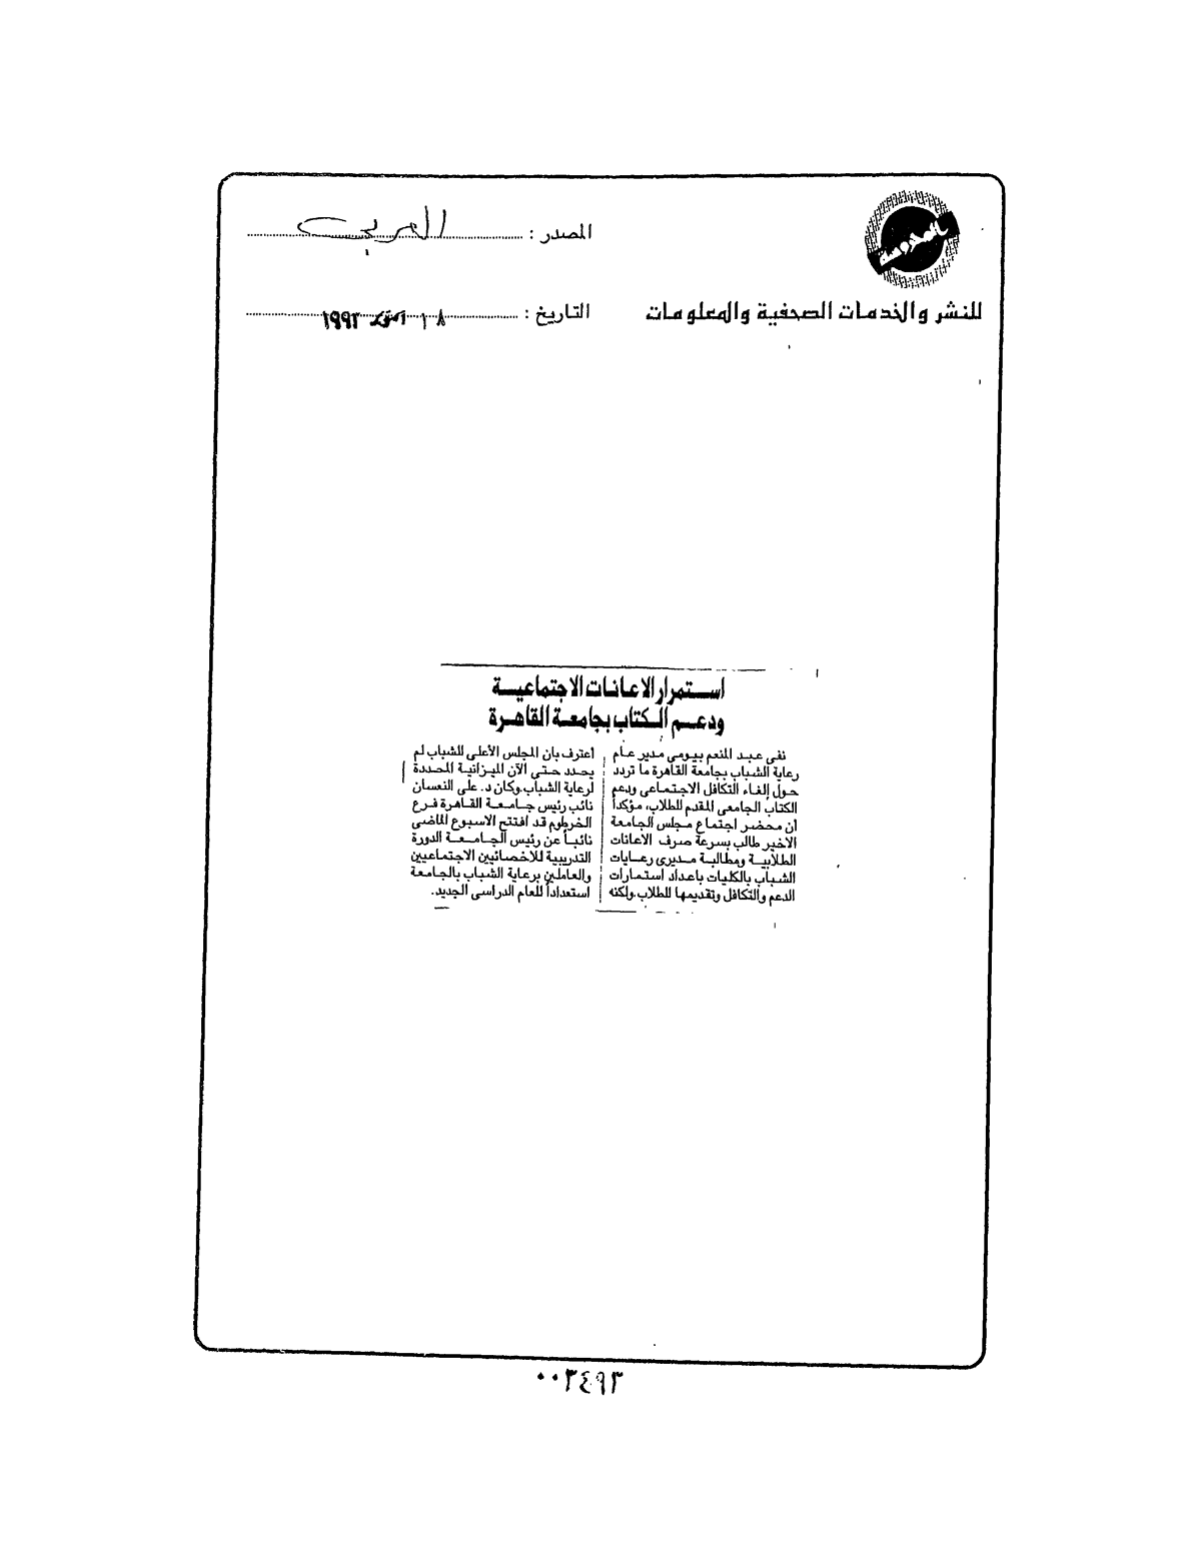 المحروسة
للنشر والخدمات الصحفية والمعلومات
المصدر : العربي
التاريخ : ١٨ اكتوبر ١٩٩٣
استمرار الاعانات الاجتماعية
ودعم الكتاب بجامعة القاهرة
نفى عبد المنعم بيومى مدير عام
رعاية الشباب بجامعة القاهرة ما تردد
حول إلغاء التكافل الاجتماعى ودعم
الكتاب الجامعى المقدم للطلاب، مؤكداً
أن محضر اجتماع مجلس الجامعة
الاخير طالب بسرعة صرف الاعانات
الطلابية ومطالبة مديرى رعايات
الشباب بالكليات باعداد استمارات
الدعم والتكافل وتقديمها للطلاب.ولكنه
أعترف بان المجلس الأعلى للشباب لم
يحدد حتى الآن الميزانية المحددة
لرعاية الشباب.وكان د. على النعسان
نائب رئيس جامعة القاهرة فرع
الخرطوم قد افتتح الاسبوع الماضى
نائباً عن رئيس الجامعة الدورة
التدريبية للاخصائيين الاجتماعيين
والعاملين برعاية الشباب بالجامعة
استعداداً للعام الدراسى الجديد.
٠٠٣٤٩٣